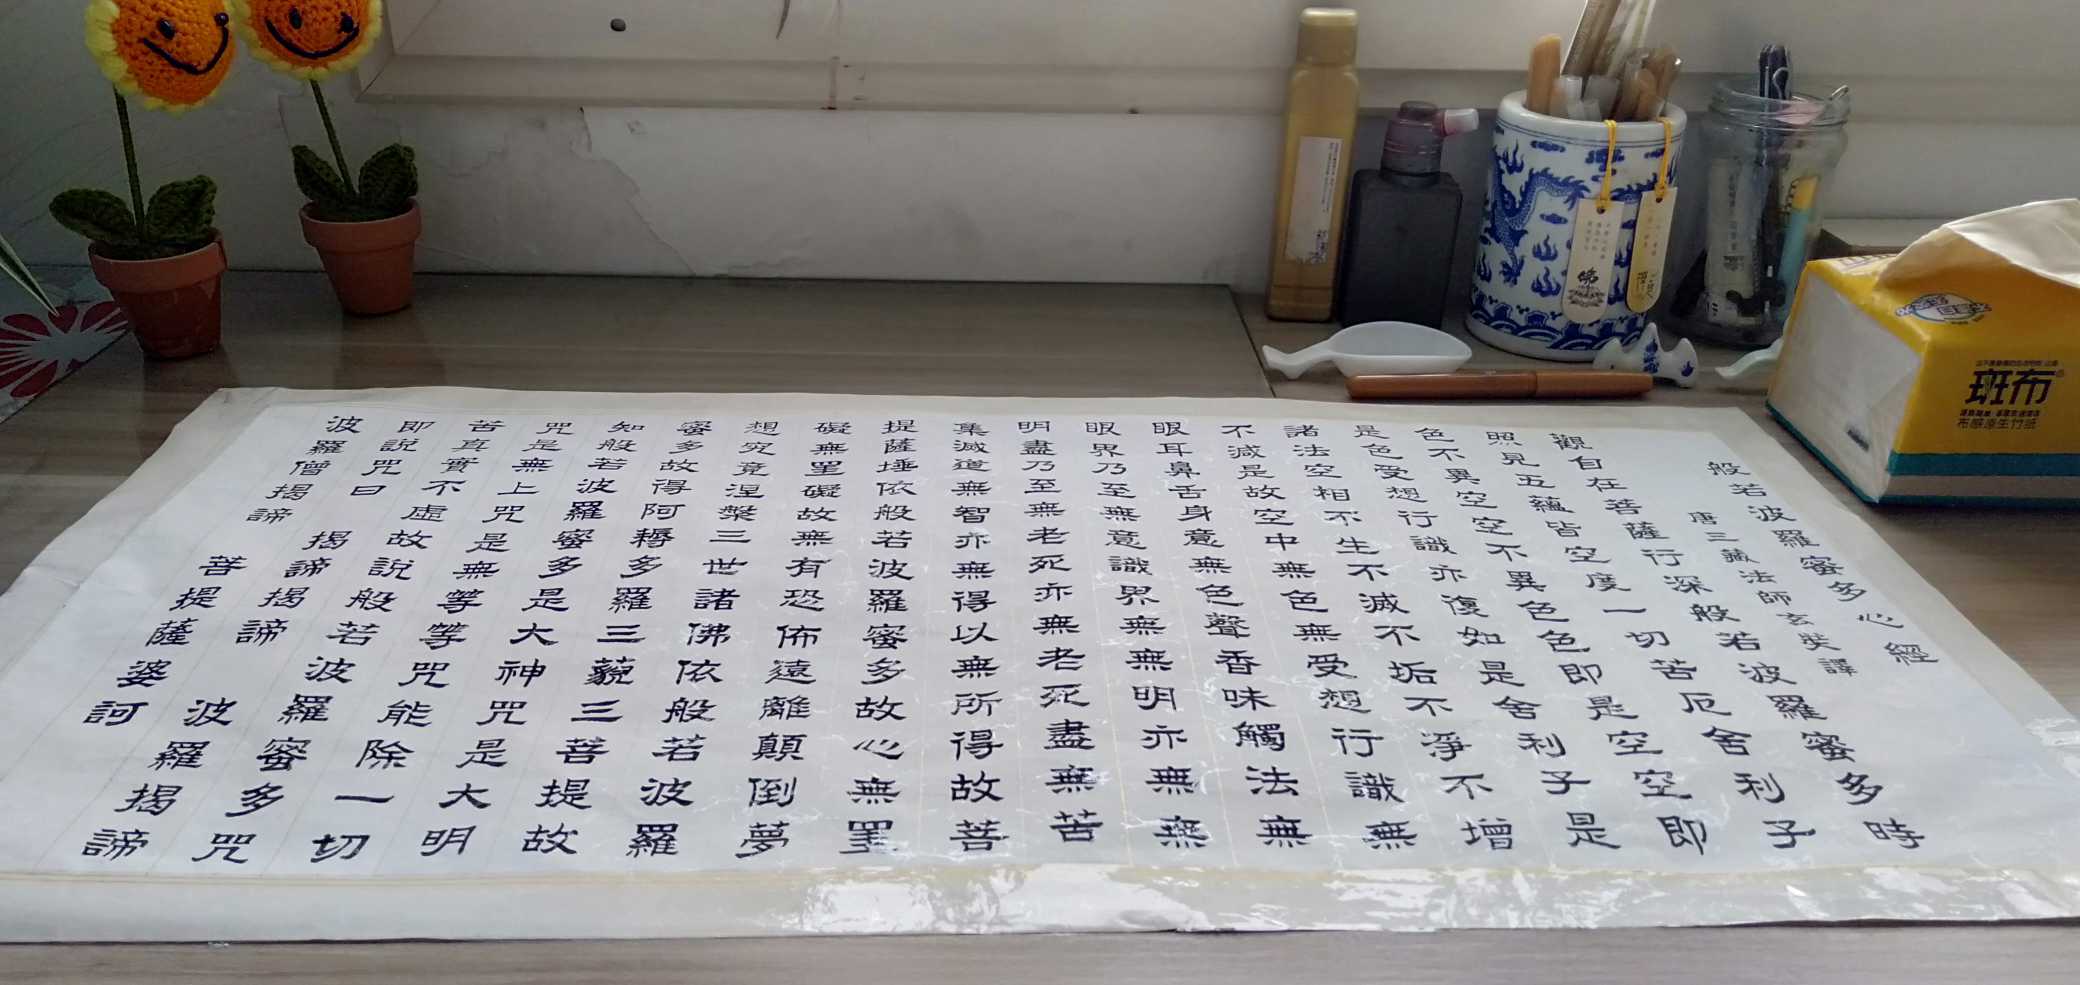 般若波羅蜜多心經
唐三藏法師玄奘譯
觀自在菩薩行深般若波羅蜜多時
照見五蘊皆空度一切苦厄舍利子
色不異空空不異色色即是空空即
是色受想行識亦復如是舍利子是
諸法空相不生不滅不垢不淨不增
不減是故空中無色無受想行識無
眼耳鼻舌身意無色聲香味觸法無
眼界乃至無意識界無無明亦無無
明盡乃至無老死亦無老死盡無苦
集滅道無智亦無得以無所得故菩
提薩埵依般若波羅蜜多故心無罣
礙無罣礙故無有恐佈遠離顛倒夢
想究竟涅槃三世諸佛依般若波羅
蜜多故得阿耨多羅三藐三菩提故
知般若波羅蜜多是大神咒是大明
咒是無上咒是無等等咒能除一切
苦真實不虛故說般若波羅蜜多咒
即說咒曰 揭諦揭諦 波羅揭諦
波羅僧揭諦 菩提薩婆訶
佛
斑布
布感原生竹纸